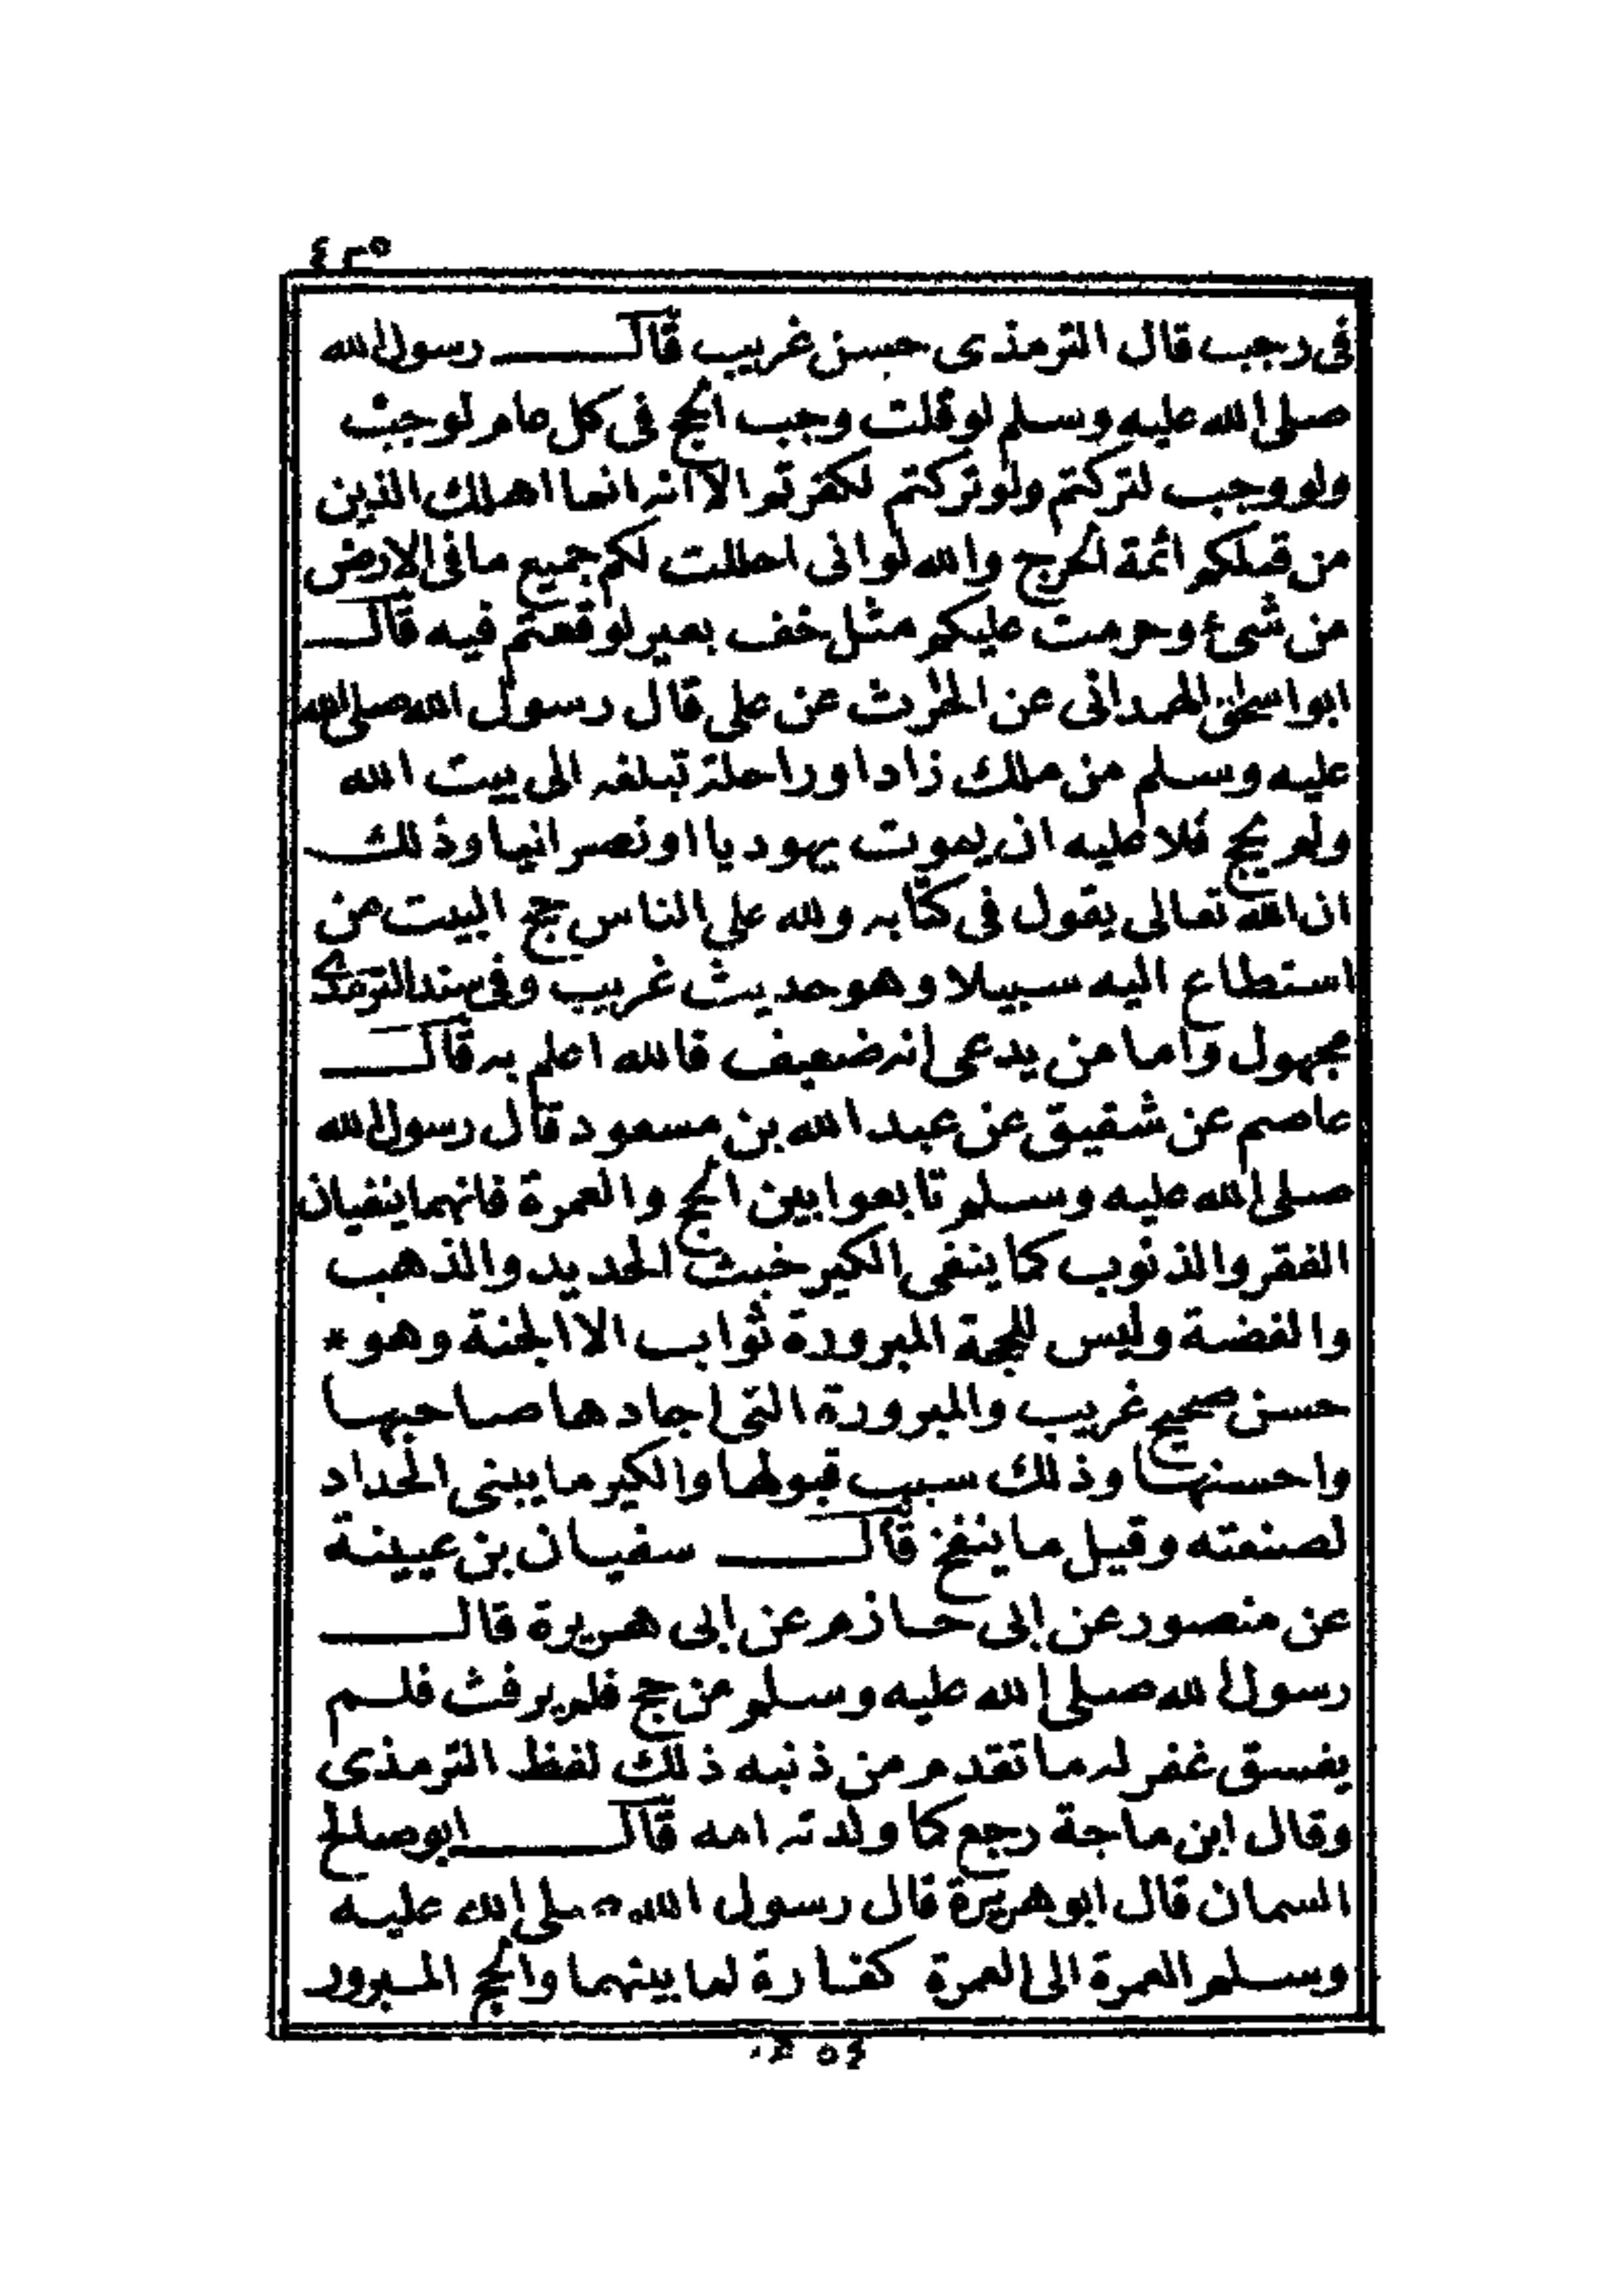 ٤٢٥
فى رجب قال الترمذى حسن غريب قال رسول الله
صلى الله عليه وسلم لو قلت وجب الحج فى كل عام لوجبت
ولو وجب لتركتم ولو تركتم لكفرتم الا انه انما اهلك الذين
من قبلكم ائمة الحرج والله لو انى احللت لكم جميع ما فى الارض
من شىء وحرمت عليكم مثل خف بعير لوقعتم فيه قال
ابو اسحق الهمدانى عن الحرث عن على قال رسول الله صلى الله
عليه وسلم من ملك زادا وراحلة تبلغه الى بيت الله
ولم يحج فلا عليه ان يموت يهوديا او نصرانيا وذلك
ان الله تعالى يقول فى كتابه ولله على الناس حج البيت من
استطاع اليه سبيلا وهو حديث غريب وفى سند الترمذى
مجهول واما من يدعى انه ضعيف فالله اعلم به قال
عاصم عن شقيق عن عبد الله بن مسعود قال رسول الله
صلى الله عليه وسلم تابعوا بين الحج والعمرة فانهما ينفيان
الفقر والذنوب كما ينفى الكير خبث الحديد والذهب
والفضة وليس للحجة المبرورة ثواب الا الجنة وهو *
حسن صحيح غريب والمبرورة التى اجادها صاحبها
واحسنها وذلك سبب قبولها والكير ما يبنى الحداد
لصنعته وقيل ما ينفخ قال سفيان بن عيينة
عن منصور عن ابى حازم عن ابى هريرة قال
رسول الله صلى الله عليه وسلم من حج فلم يرفث فلم
يفسق غفر له ما تقدم من ذنبه ذلك لفظ الترمذى
وقال ابن ماجة رجع كما ولدته امه قال ابو صالح
السمان قال ابو هريرة قال رسول الله صلى الله عليه
وسلم العمرة الى العمرة كفارة لما بينهما والحج المبرور